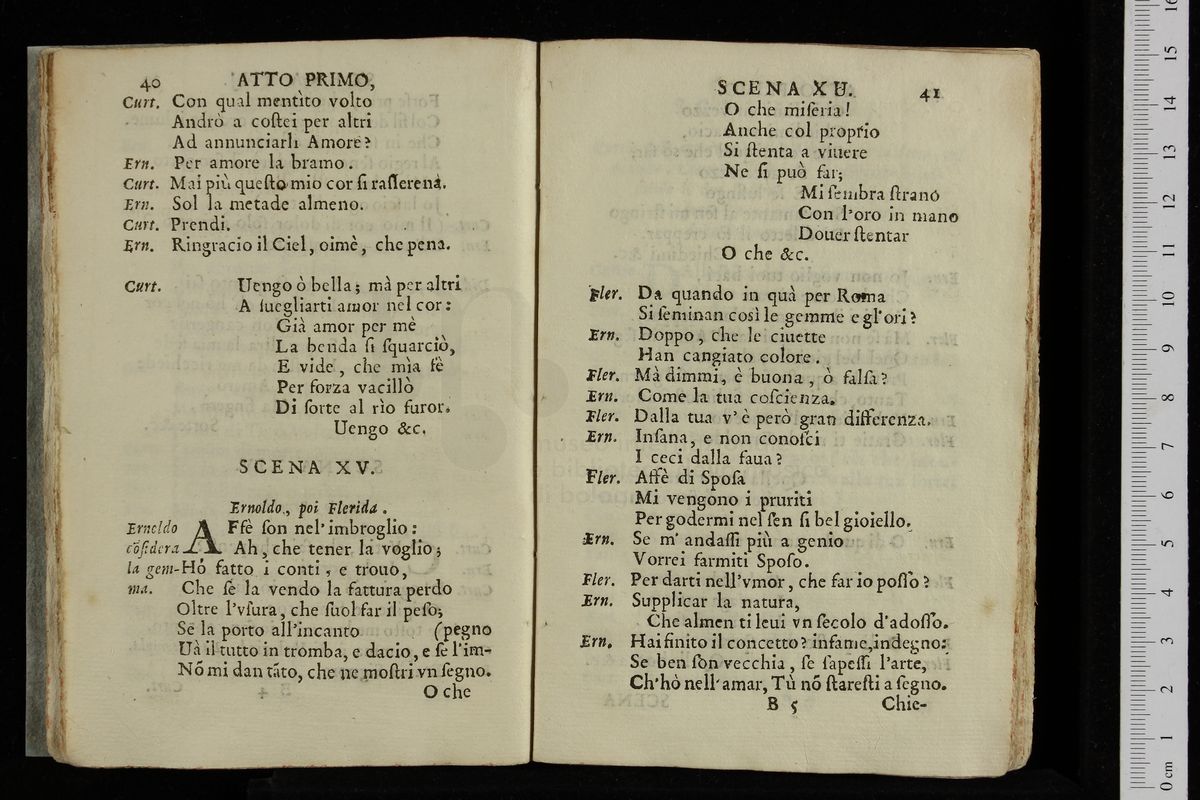 40 ATTO PRIMO,
Curt. Con qual mentito volto
Andrò a coſtei per altri
Ad annunciarli Amore?
Ern. Per amore la bramo.
Curt. Mai più queſto mio cor ſi raſſerena.
Ern. Sol la metade almeno.
Curt. Prendi.
Ern. Ringracio il Ciel, oimè, che pena.
Curt. Uengo ò bella; mà per altri
A ſuegliarti amor nel cor:
Già amor per mè
La benda ſi ſquarciò,
E vide, che mia fè
Per forza vacillò
Di ſorte al rìo furor.
Uengo &c.
SCENA XV.
Ernoldo, poi Flerida.
Ernoldo AFfè ſon nel' imbroglio:
cõſidera Ah, che tener la voglio;
la gem- Hò fatto i conti, e trouo,
ma. Che ſe la vendo la fattura perdo
Oltre l'vſura, che ſuol far il peſo;
Se la porto all'incanto (pegno
Uà il tutto in tromba, e dacio, e ſe l'im-
Nõ mi dan tãto, che ne moſtri vn ſegno.
O che
SCENA XU. 41
O che miſeria!
Anche col proprio
Si ſtenta a viuere
Ne ſi può far;
Mi ſembra ſtrano
Con l'oro in mano
Douer ſtentar
O che &c.
Fler. Da quando in quà per Roma
Si ſeminan così le gemme e gl'ori?
Ern. Doppo, che le ciuette
Han cangiato colore.
Fler. Mà dimmi, è buona, ò falſa?
Ern. Come la tua coſcienza.
Fler. Dalla tua v'è però gran differenza.
Ern. Inſana, e non conoſci
I ceci dalla faua?
Fler. Affè di Spoſa
Mi vengono i pruriti
Per godermi nel ſen ſi bel gioiello.
Ern. Se m' andaſſi più a genio
Vorrei farmiti Spoſo.
Fler. Per darti nell'vmor, che far io poſſo?
Ern. Supplicar la natura,
Che almen ti leui vn ſecolo d'adoſſo.
Ern. Hai finito il concetto? infame, indegno:
Se ben ſon vecchia, ſe ſapeſſi l'arte,
Ch'hò nell'amar, Tù nõ ſtareſti a ſegno.
B 5 Chie-